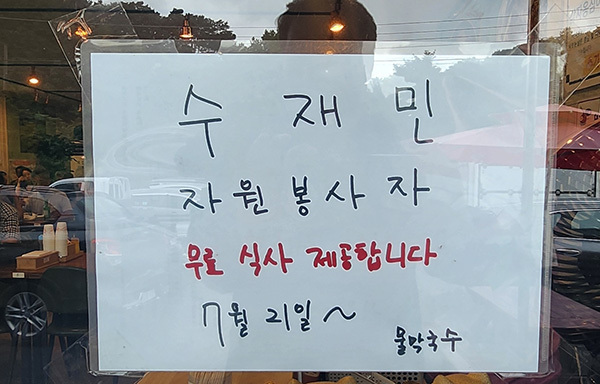 수 재 민
자 원 봉 사 자
무료 식사 제공합니다
7월 21일 ~
물막국수